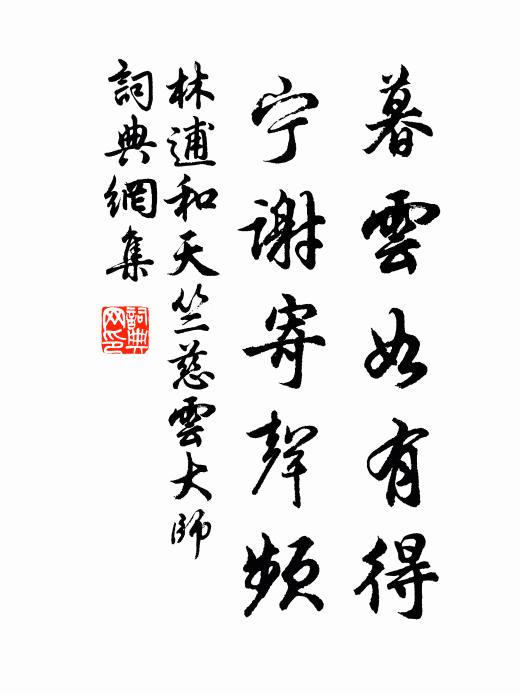 暮雲如有得
宁謝寄聲頻
林逋和天竺慈雲大師
詞典網集
詞典网印